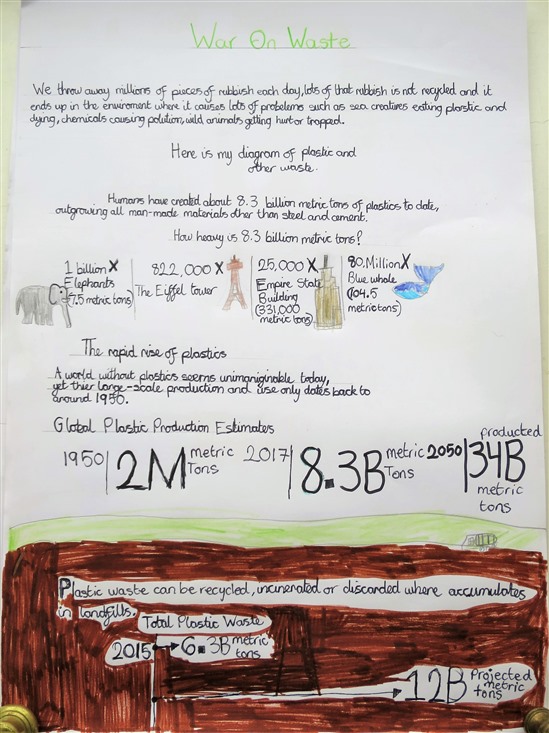 War On Waste
We throw away millions of pieces of rubbish each day, lots of that rubbish is not recycled and it
ends up in the enviroment where it causes lots of probelems such as sea creatives eating plarstic and
dying, chemicals causing polution, wild animals getting hurt or trapped.
Here is my diagram of plastic and
other waste.
Humans have created about 8.3 billion metric tons of plastics to date,
outgrowing all man-made materials other than steel and cement.
How heavy is 8.3 billion metric tons?
1 billion X
Elephants
(7.5 metric tons)
822,000 X
The Eiffel tower
25,000 X
Empire State
Building
(331,000
metric tons)
80.Million X
Blue whale
(104.5
metric tons)
The rapid rise of plastics
A world without plastics seems unimaniginable today,
yet thier large-scale production and use only dates back to
around 1950.
Global Plastic Production Estimates
1950 2M metric Tons
2017 8.3B metric Tons
2050 34B producted metric tons
Plastic waste can be recycled, incinerated or discarded where accumulates
in landfills.
Total Plastic Waste
2015 6.3B metric tons
12B Projected metric tons